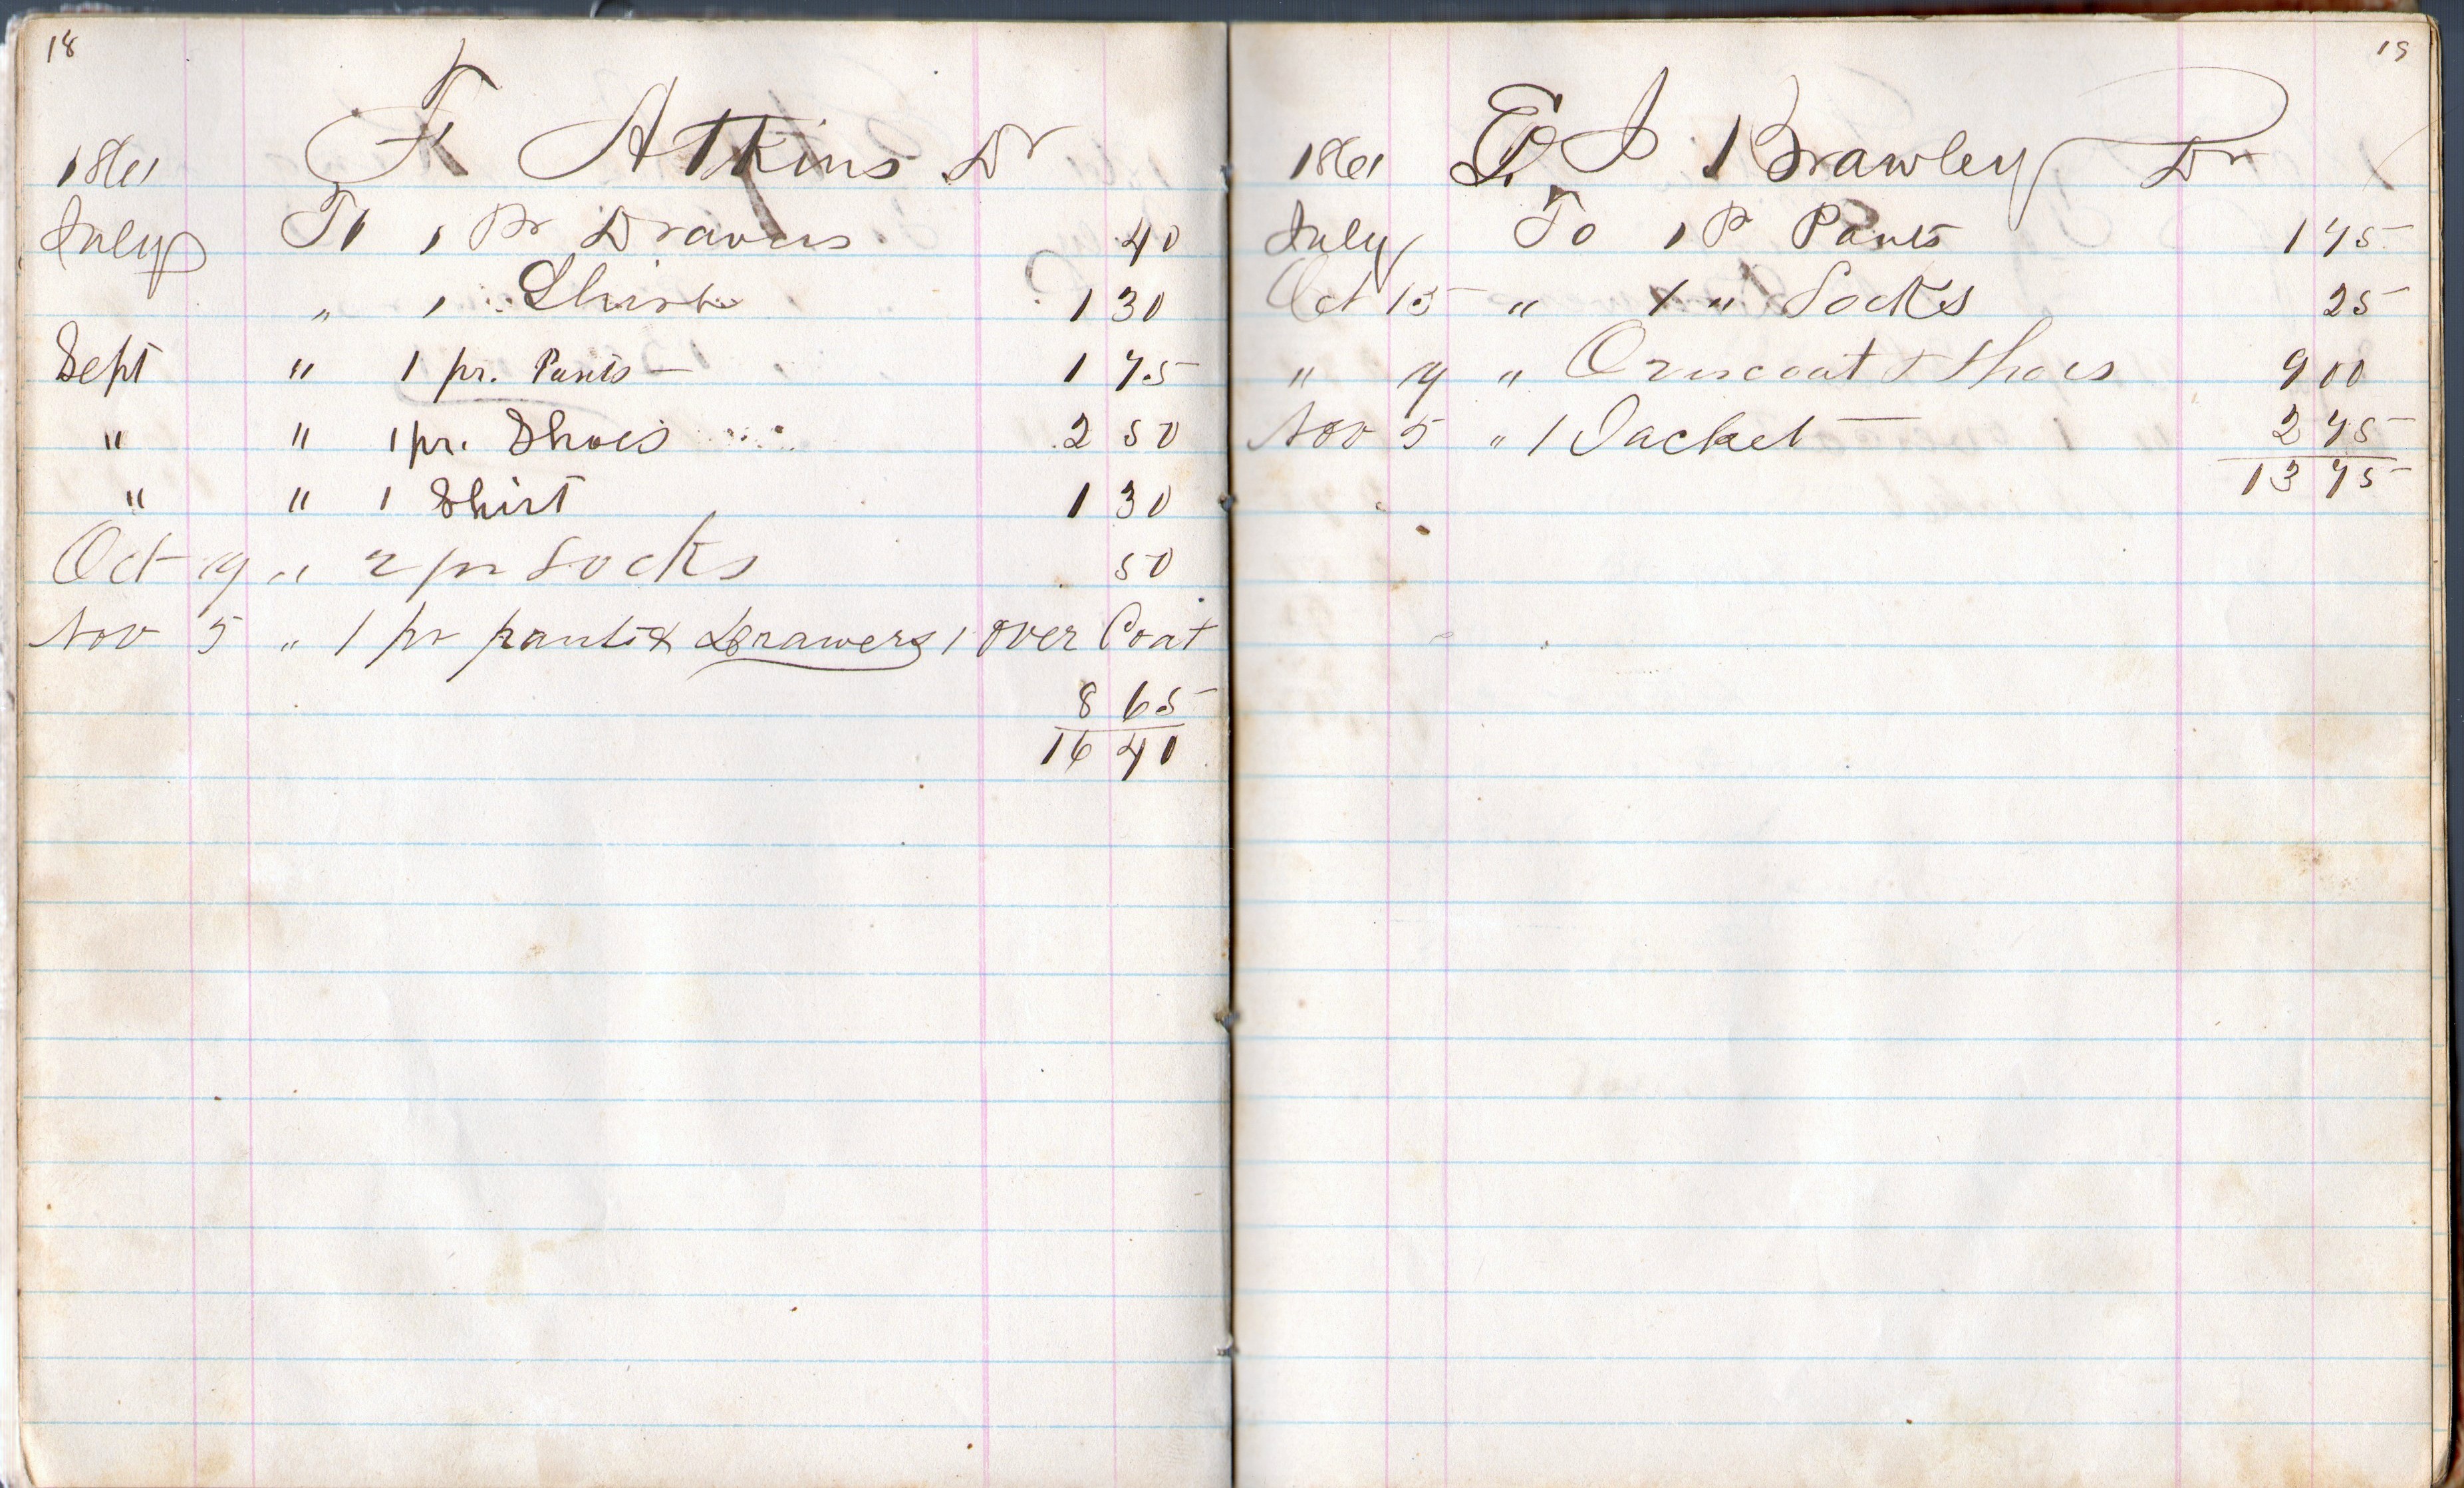 18
F Atkins Dr
1861
July To 1 Pr Drawers 40
" 1 " Shirt 1 30
Sept " 1 pr. Pants — 1 75
" " 1 pr. Shoes 2 50
" " 1 Shirt 1 30
Oct 19 " 2 pr Socks 50
Nov 5 " 1 pr pants & Drawers 1 Over Coat
8 65
16 40
19
1861 J Brawley Dr
July To 1 P Pants 1 75
Oct 15 " 1 " Socks 25
" 19 " Overcoat & Shoes 9 00
Nov 5 " 1 Jacket — 2 75
13 75